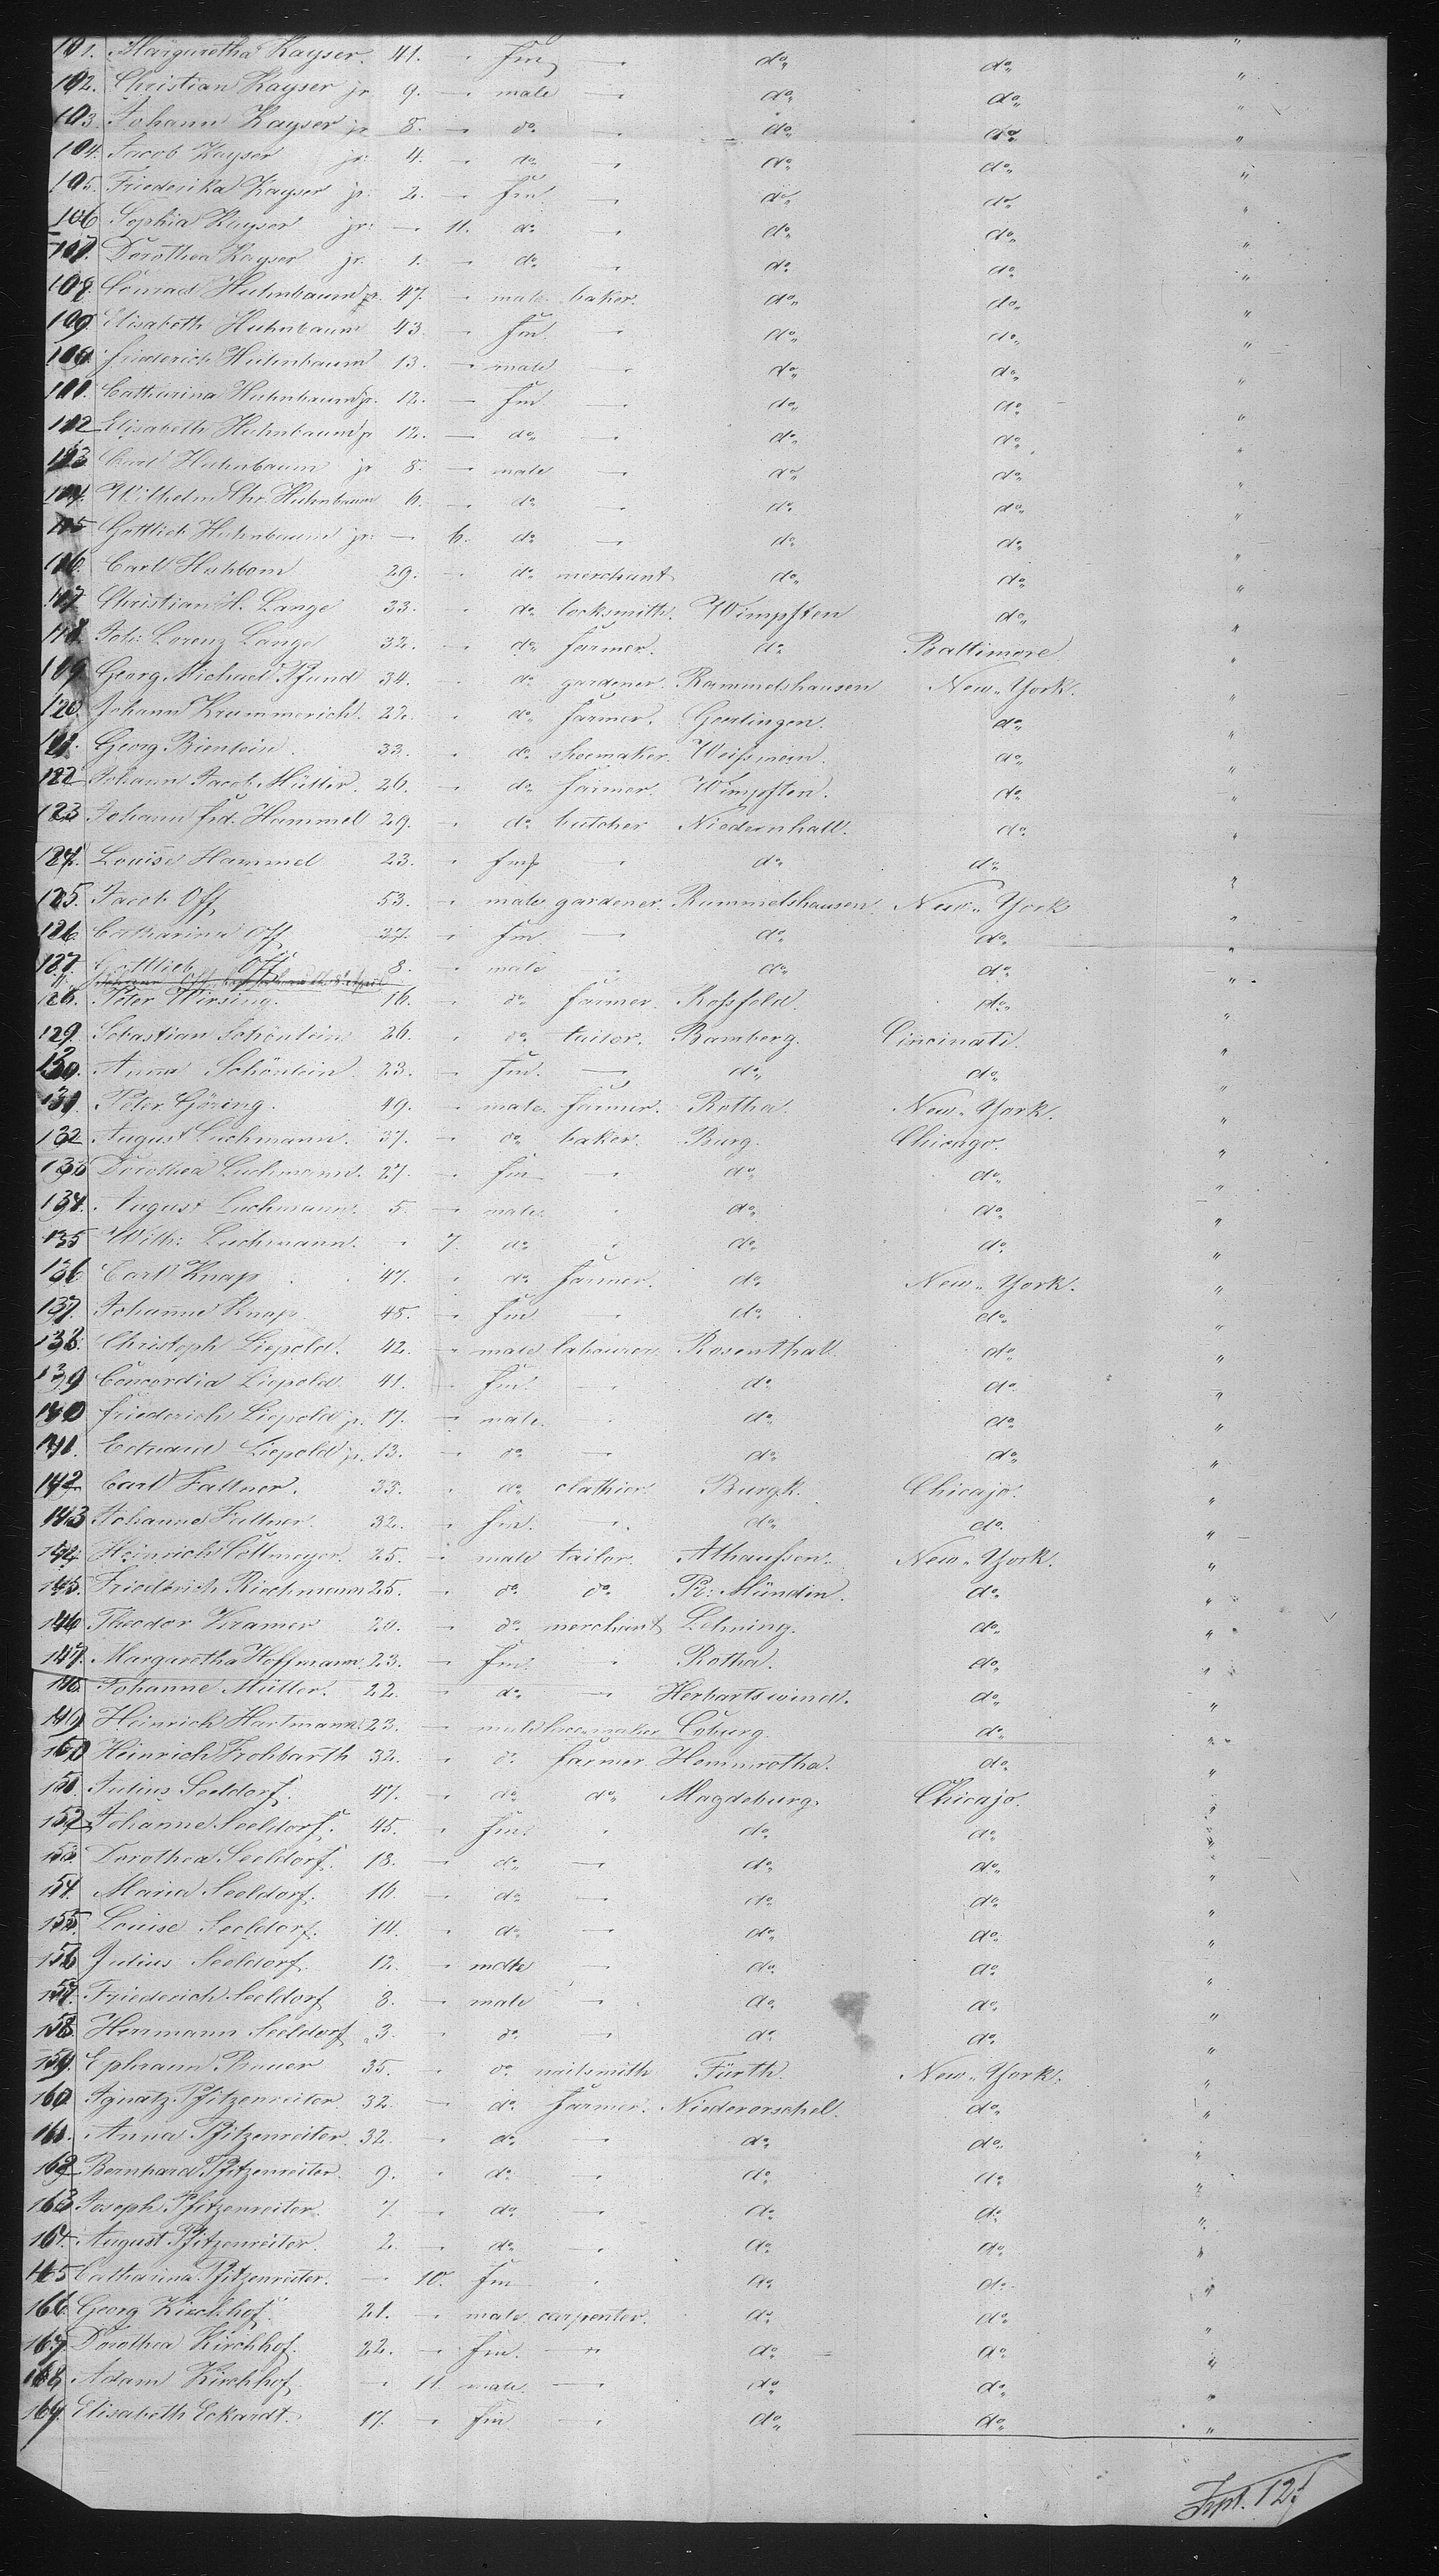 101. Margaretha Kayser. 41. — fm — do do "
102. Christian Kayser jr. 9. — male — do do "
103. Johann Kayser jr. 8. — do — do do "
104. Jacob Kayser jr. 4. — do — do do "
105. Friederika Kayser jr. 2. — fm. — do do "
106 Sophia Kayser jr. — 11. do — do do "
107. Dorothea Kayser jr. 1. — do — do do "
108. Conrad Huhnbaum jr. 47. — male baker. do do "
109 Elisabeth Huhnbaum 43. — fm. — do do "
Friederich Huhnbaum 13. — male — do do "
Catharina Huhnbaum jr. 12. — fm — do do "
112 Elisabeth Huhnbaum jr 12. — do — do do "
113 Carl Huhnbaum jr 8. — male — do do "
114. Wilhelm Chr. Huhnbaum 6. — do — do do "
115 Gottlieb Huhnbaum jr. — 6. do — do do "
116. Carl Huhbom 29. — do merchant do do "
117 Christian H. Lange 33. — do locksmith. Wimpften do "
118. Joh: Lorenz Lange 32. — do farmer. do Baltimore "
119. Georg Michael Pfund 34. — do gardener. Rammelshausen New-York. "
120. Johann Krummerich. 22. — do farmer. Gerlingen. do "
121. Georg Bienlein. 33. — do shoemaker. Weißmein. do "
122 Johann Jacob Müller. 26. — do farmer. Wimpften. do "
123 Johann frd. Hammel 29. — do butcher Niedernhall. do "
124. Louise Hammel 23. — fm — do do "
125. Jacob Off 53. — male gardener. Rummelshausen. New-York "
126. Catharina Off 27. — fm — do do "
127. Gottlieb Off 8. — male — do do "
128. Peter Wirsing. 16. — do farmer. Roßfeld. do "
129. Sebastian Schönlein 26. — do tailor. Bamberg. Cincinati. "
130. Anna Schönlein 23. — fm. — do do "
131 Peter Göring. 49. — male farmer. Rotha. New-York. "
132 August Luchmann. 37. — do baker. Burg. Chicago. "
133 Dorothea Luchmann. 27. — fm — do do "
134. August Luchmann. 5. — male — do do "
135 Wilh: Luchmann. — 7. do — do do "
136 Carl Knap 47. — do farmer. do New-York. "
137. Johanne Knap 48. — fm — do do "
138. Christoph Liepold. 42. — male labourer Rosenthall do "
139 Concordia Liepold. 41. — fm. — do do "
140 Friederich Liepold jr. 17. — male. — do do "
141. Eduard Liepold jr. 13. — do — do do "
142 Carl Fattner. 33. — do clathier. Burgk. Chicajo. "
143 Johanne Fattner. 32. — fm. — do do "
144. Heinrich Cöllmeyer. 25. — male tailor. Athaußen. New-York. "
145. Friederich Rischmann 25. — do do Pr: Mündin. do "
146 Theodor Kramer 20. — do merchant Lehning. do "
147. Margaretha Hoffmann. 23. — fm. — Rotha. do "
148 Johanne Müller. 22. — do — Herbartswind. do "
149 Heinrich Hartmann 23. — male Coburg. do "
150 Heinrich Frohbarth 32. — do farmer. Hemmrotha. do "
151. Julius Seeldorf. 47. — do do Magdeburg. Chicajo. "
152 Johanne Seeldorf. 45. — fm. — do do "
153 Dorothea Seeldorf. 18. — do — do do "
154. Maria Seeldorf. 16. — do — do do "
155 Louise Seeldorf. 14. — do — do do "
156 Julius Seeldorf. 12. — male — do do "
157. Friederich Seeldorf 8. — male — do do "
158. Herrmann Seeldorf 3. — do — do do "
159. Ephraim Bauer 35. — do nailsmith Fürth. New-York. "
160 Ignatz Pfitzenreiter. 32. — do farmer. Niederorschel. do "
161. Anna Pfitzenreiter. 32. — do — do do "
162 Bernhard Pfitzenreiter. 9. — do — do do "
163 Joseph Pfitzenreiter. 7. — do — do do "
164. August Pfitzenreiter. 2. — do — do do "
165 Catharina Pfitzenreiter. — 10. fm — do do "
166. Georg Kirchhof. 21. — male carpenter. do do "
167 Dorothea Kirchhof. 22. — fm. — do do "
168 Adam Kirchhof. — 11. male. — do do "
169. Elisabeth Eckardt. 17. — fm — do do "